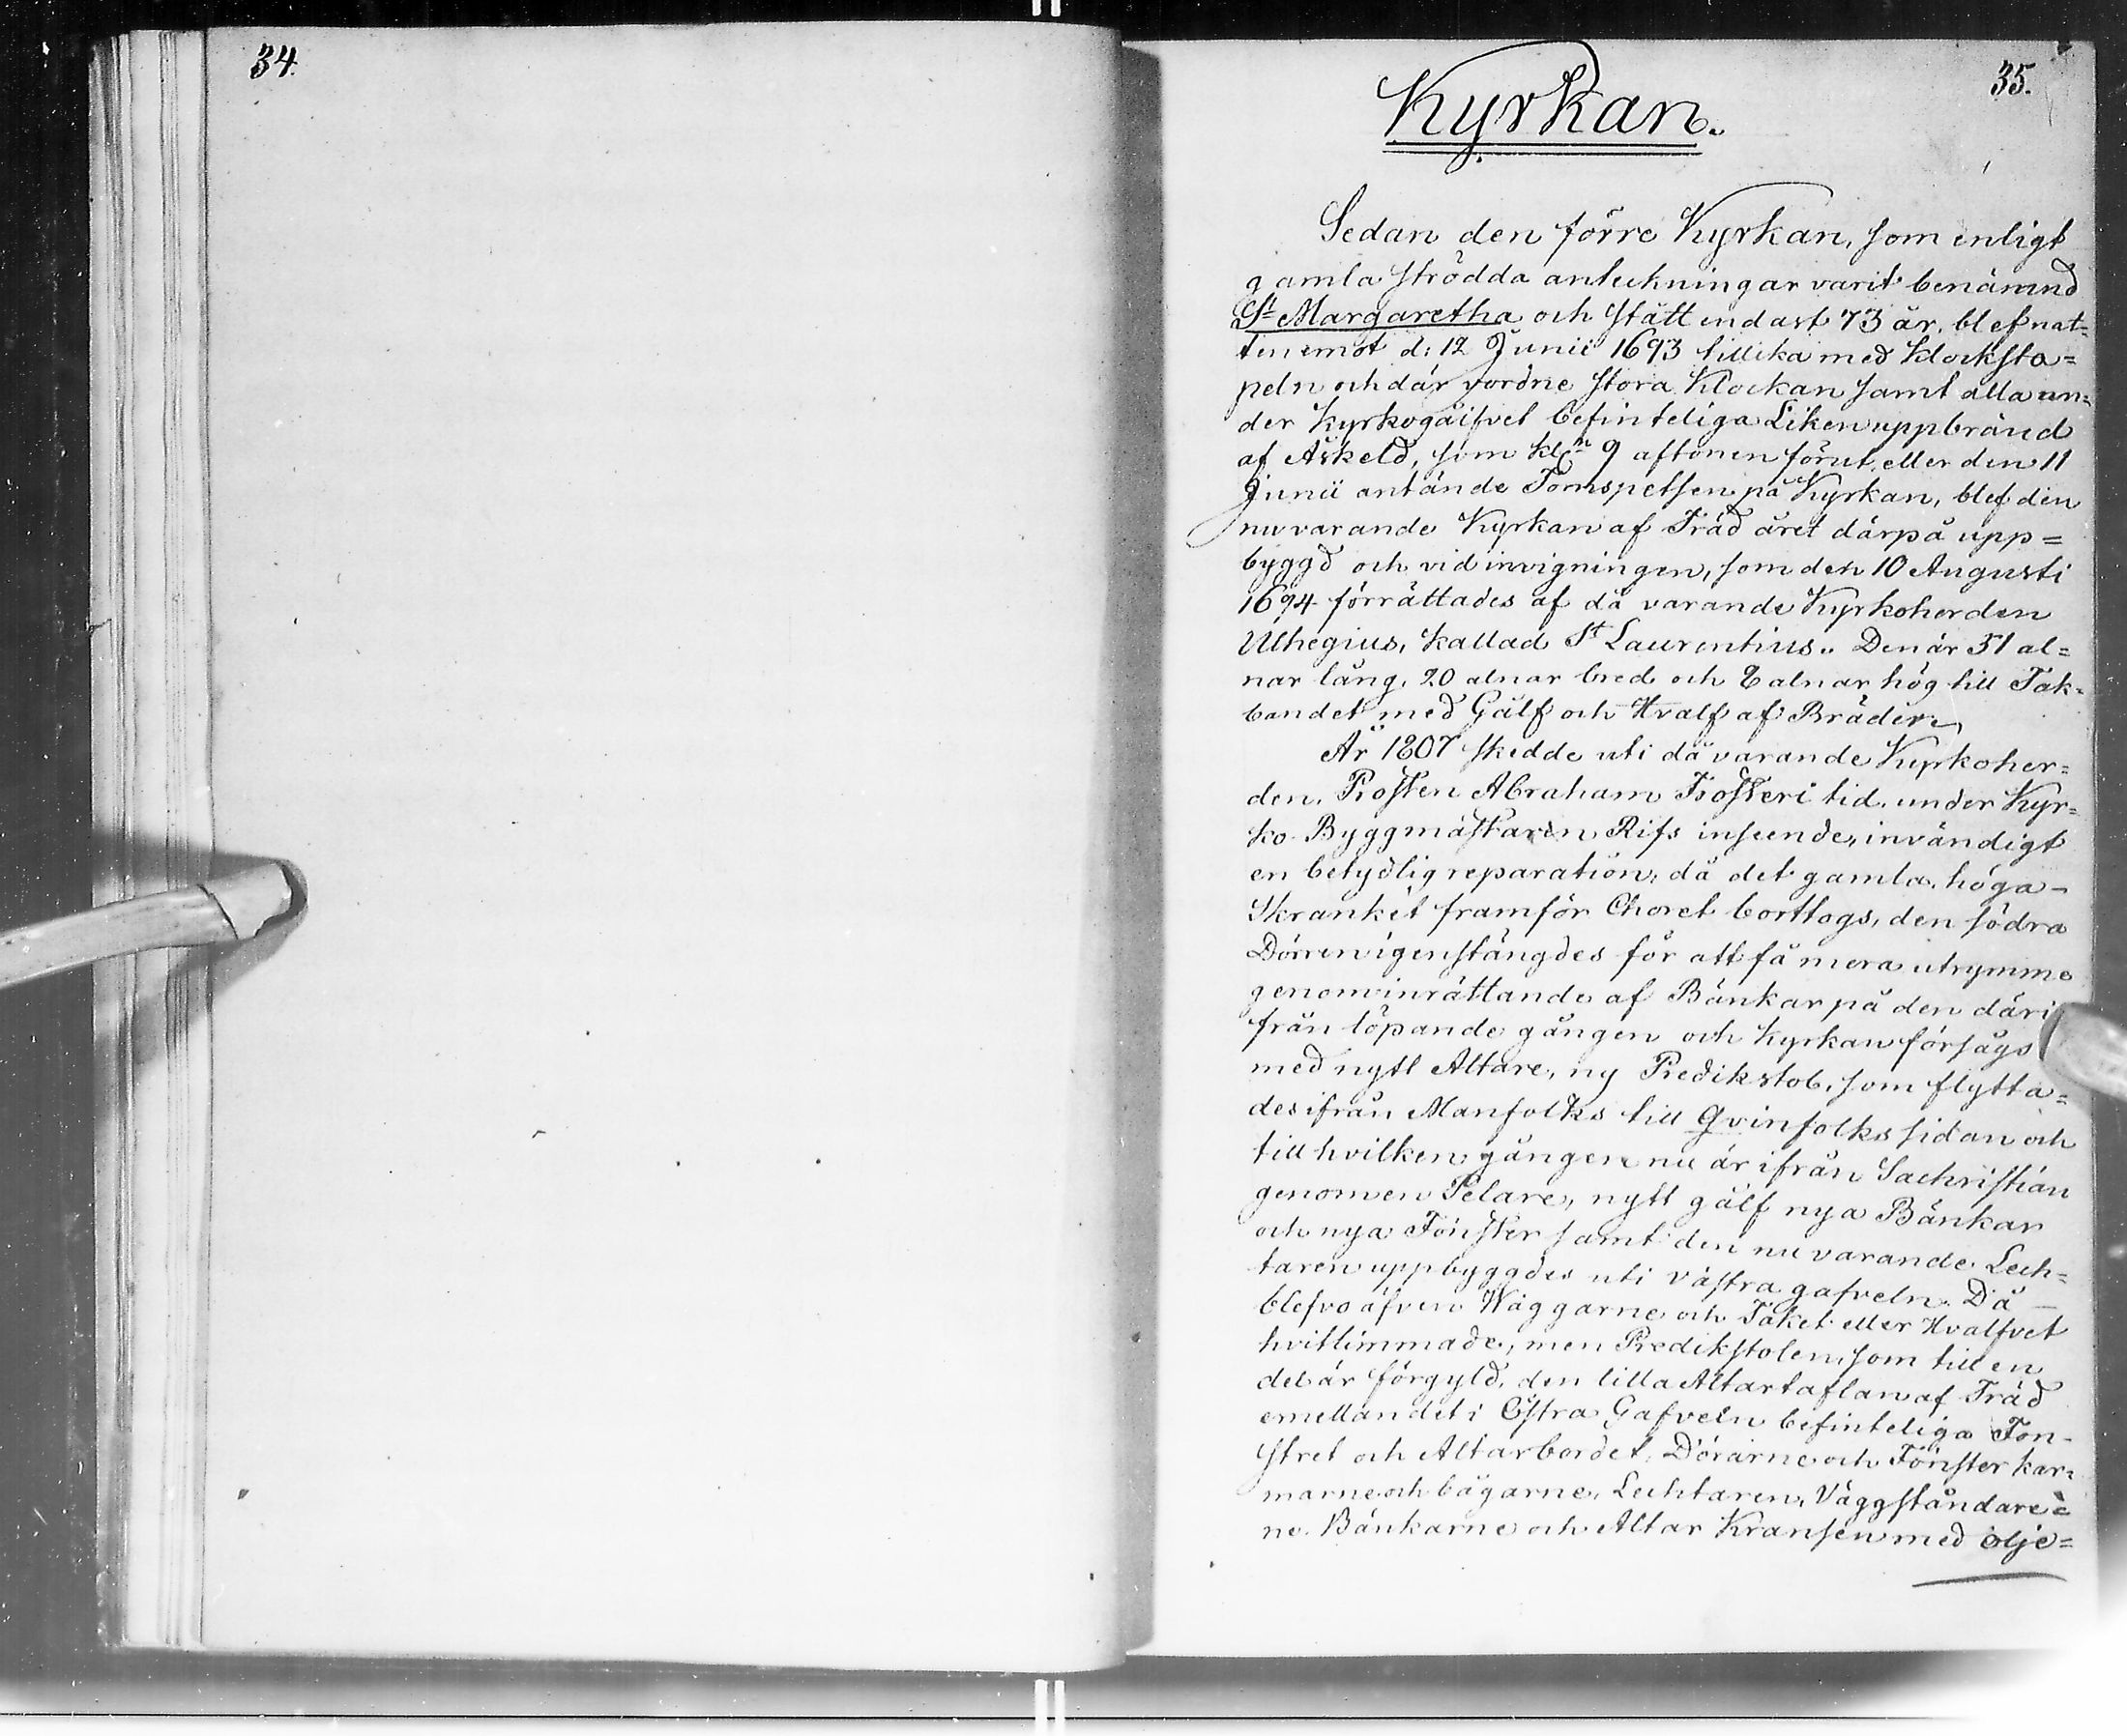 34.
35.
Kyrkan.
Sedan den förre Kyrkan, som enligt
gamla strödda anteckningar varit benämnd
St Margaretha och stått endast 73 år, blef nat=
ten emot d: 12 Junii 1693 tillika med klocksta=
peln och där vordne stora Klockan samt alla un=
der kyrkogålfvet befinteliga Liken uppbränd
af Åskeld, som kl:n 9 aftonen förut eller den 11
Junii antände Tornspetsen på Kyrkan, blef den
nuvarande Kyrkan af Träd året därpå upp=
byggd och vid invigningen, som den 10 Augusti
1694 förrättades af då varande Kyrkoherden
Ulhegius, kallad St Laurentius. Den är 51 al=
nar lång, 20 alnar bred och 8 alnar hög till Tak=
bandet med Gålf och Hvalf af Bräder.
År 1807 skedde uti då varande Kyrkoher=
den, Prosten Abraham Frosteri tid, under Kyr=
ko Byggmästaren Rifs inseende, invändigt
en betydlig reparation, då det gamla, höga
Skranket framför Choret borttogs, den södra
Dörren igenstängdes för att få mera utrymme
genom inrättande af Bänkar på den däri
från löpande gången och Kyrkan försågs
med nytt Altare, ny Predikstol, som flytta=
des ifrån Manfolks till Qvinfolks sidan och
till hvilken gången nu är ifrån Sachristian
genom en Pelare, nytt gålf nya Bänkar
och nya Fönster samt den nu varande Lech=
taren uppbyggdes uti västra gafveln. Då
blefvo äfven Wäggarne och Taket eller Hvalfvet
hvitlimmade, men Predikstolen, som till en
del är förgyld, den lilla Altartaflan af Träd
emellan det i Östra Gafveln befinteliga Fön-
stret och Altarbordet, Dörarne och Fönster kar=
marne och bågarne, Lechtaren, Väggståndare=
ne, Bänkarne och Altar Kransen med olje=